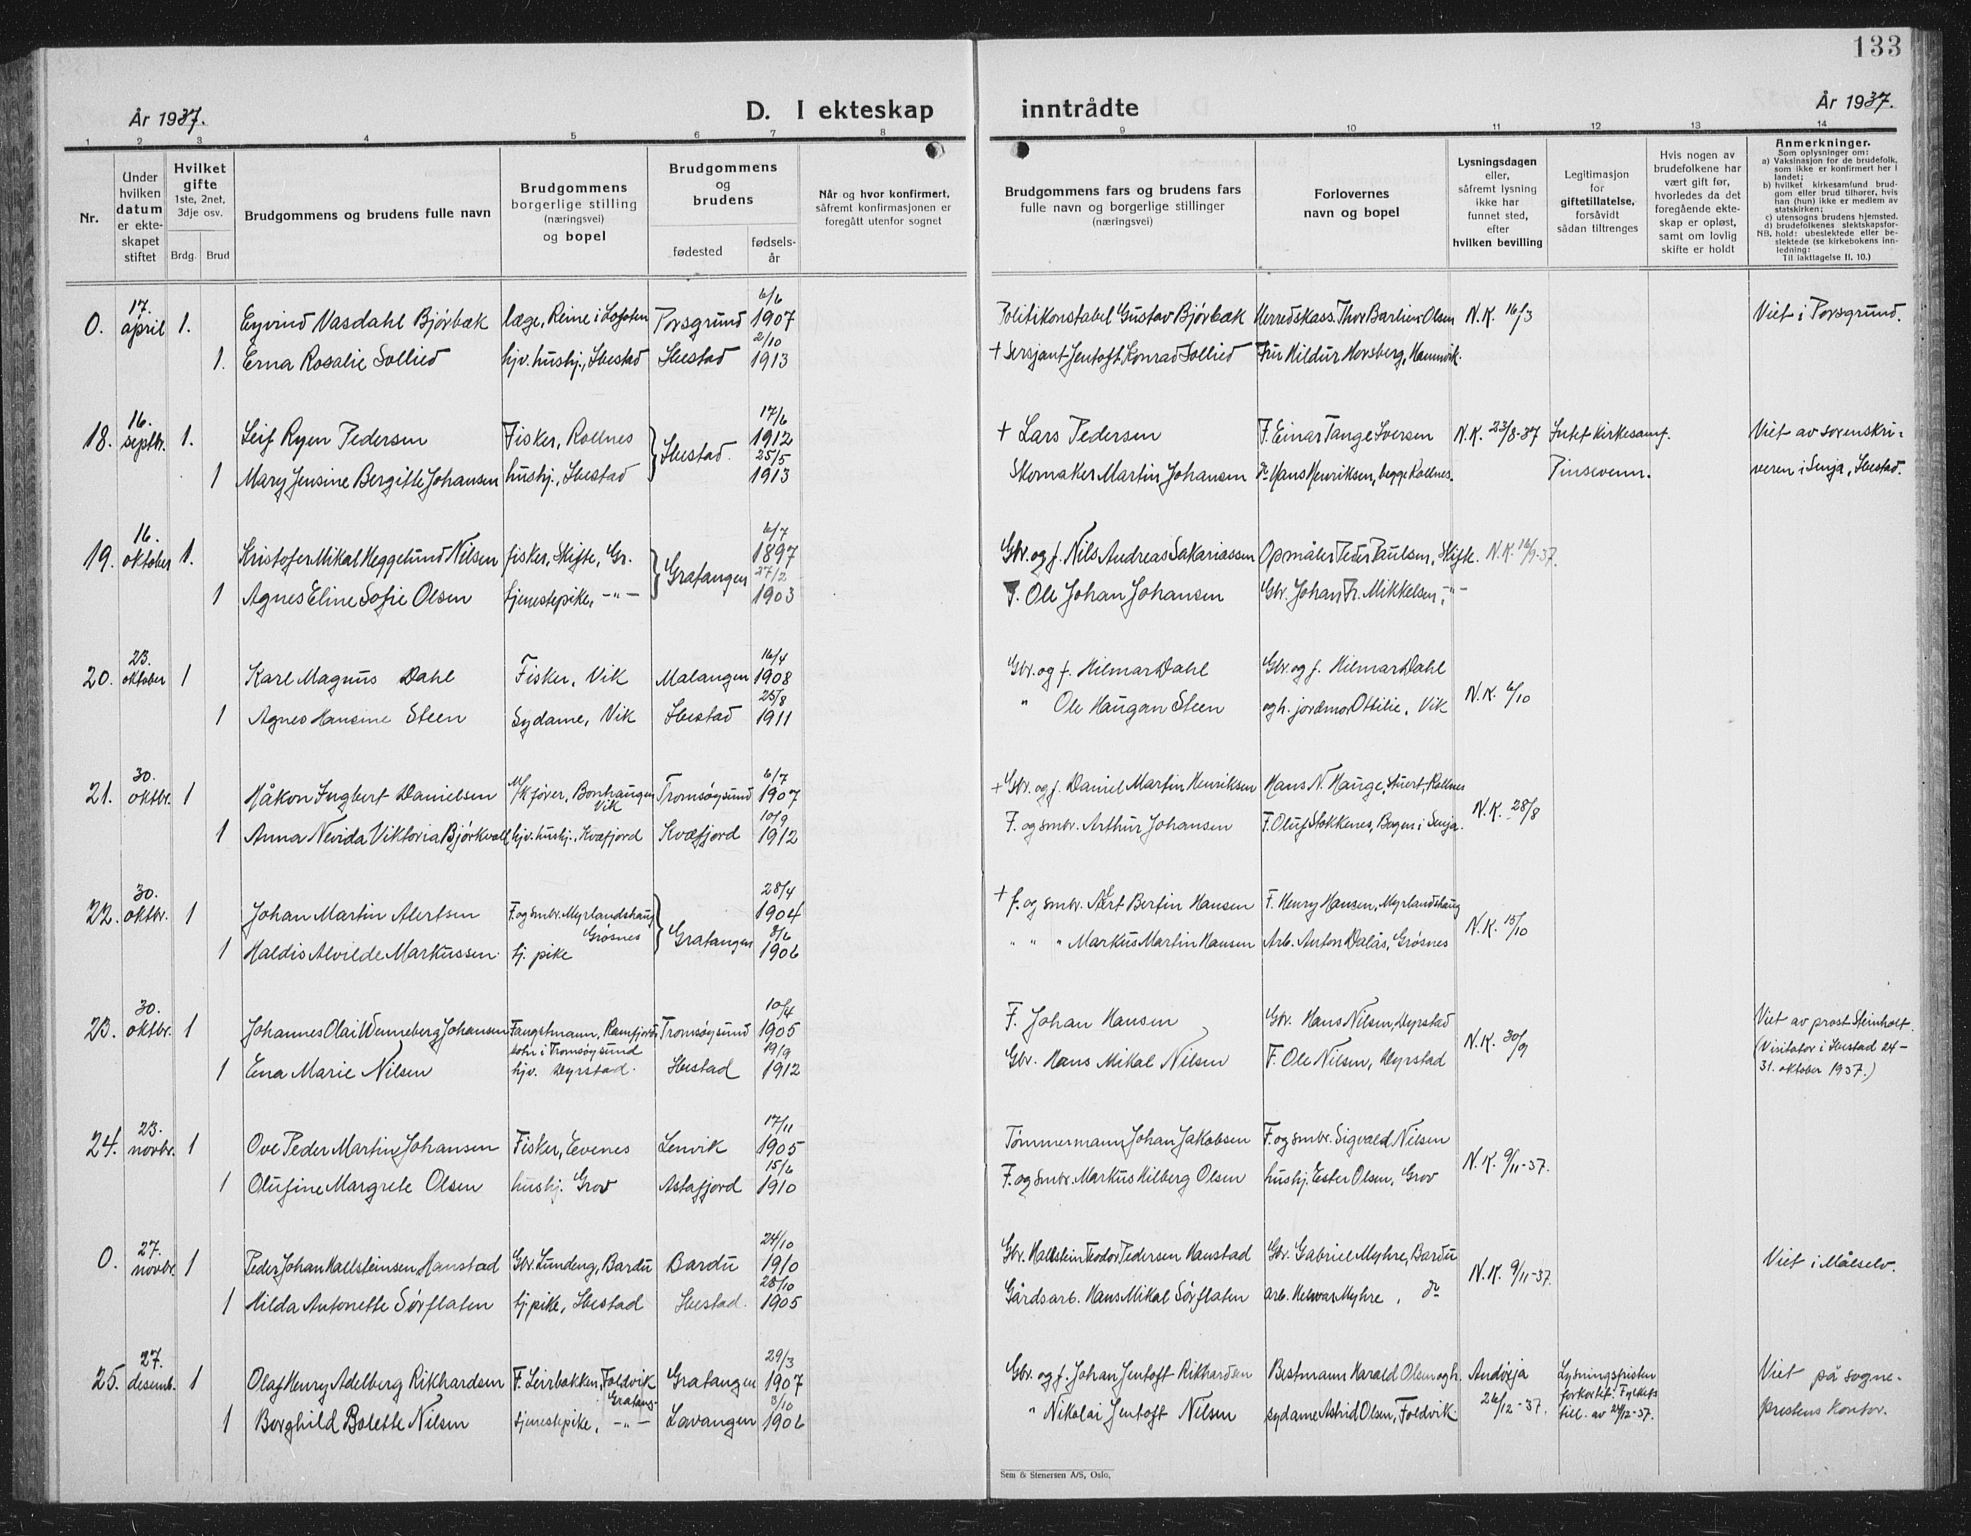 133
År 1937.
D. I ekteskap inntrådte
År 1937.
1 2 3 4 5 6 7 8 9 10 11 12 13 14
Nr.
Under hvilken datum er ekteskapet stiftet
Hvilket gifte 1ste, 2net, 3dje osv.
Brdg. Brud
Brudgommens og brudens fulle navn
Brudgommens borgerlige stilling (næringsvei) og bopel
Brudgommens og brudens
fødested
fødselsår
Når og hvor konfirmert, såfremt konfirmasjonen er foregått utenfor sognet
Brudgommens fars og brudens fars fulle navn og borgerlige stillinger (næringsvei)
Forlovernes navn og bopel
Lysningsdagen eller, såfremt lysning ikke har funnet sted, efter hvilken bevilling
Legitimasjon for giftetillatelse, forsåvidt sådan tiltrenges
Hvis nogen av brudefolkene har vært gift før, hvorledes da det foregående ekteskap er opløst, samt om lovlig skifte er holdt
Anmerkninger.
Som oplysninger om:
a) Vaksinasjon for de brudefolk, som ikke er konfirmert her i landet;
b) hvilket kirkesamfund brudgom eller brud tilhører, hvis han (hun) ikke er medlem av statskirken;
c) utensogns brudens hjemsted.
d) brudefolkenes slektskapsforhold: ubeslektede eller beslektede (se kirkebokens innledning: NB. Til iakttagelse II. 10.)
0. 17. april 1. Eyvind Vasdahl Bjørbæk læge, Reine i Lofoten Porsgrund 6/6 1907 Politikonstabel Gustav Bjørbæk Herredskass. Thor Barlien-Olsen N.K. 16/3 Viet i Porsgrund.
1. Erna Rosalie Sollied hjv. hushj., Ibestad Ibestad 2/10 1913 + Sersjant Jentoft Konrad Sollied Fru Hildur Horsberg, Hamnvik.
18. 16. septbr. 1. Leif Ryen Pedersen Fisker, Rollnes Ibestad. 17/6 1912 + Lars Pedersen F. Einar Tange Iversen N.K. 23/8-37 Intet kirkesamf. Viet av sorenskri-
1 Mary Jensine Bergitte Johansen hushj., Ibestad 25/5 1913 Skomaker Martin Johansen Hans Henriksen, begge Rollnes. Pinsevenn. veren i Senja, Ibestad.
19. 16. oktober 1. Kristofer Mikal Heggelund Nilsen fisker, Skifte, Gr. Gratangen 6/7 1897 Gbr. og f. Nils Andreas Sakariassen Opmåler Peder Paulsen, Skifte. N.K. 16/9-37.
1 Agnes Eline Sofie Olsen tjenestepike, -"- 27/2 1903 F. Ole Johan Johansen Gbr. Johan Fr. Mikkelsen, -"-
20. 23. oktober 1 Karl Magnus Dahl Fisker, Vik Malangen 16/4 1908 Gbr. og f. Hilmar Dahl Gbr. og f. Hilmar Dahl N.K. 6/10
1 Agnes Hansine Steen Sydame, Vik Ibestad 25/8 1911 " Ole Haugan Steen og h. jordmor Ottilie, Vik
21. 30. oktbr. 1 Håkon Ingbert Danielsen M/K fører, Bonhaugen Vik Tromsøysund 6/7 1907 + Gbr. og f. Daniel Martin Henriksen Hans N. Hauge, stuert, Rollnes N.K. 28/8
1 Anna Nevida Viktoria Bjørkvoll hjv. hushj., Kvæfjord Kvæfjord 10/9 1912 F. og smbr. Arthur Johansen F. Oluf Stokkenes, Bogen i Senja.
22. 30. oktbr. 1 Johan Martin Alertsen F. og smbr. Myrlandshaug Grøsnes Gratangen 28/4 1904 + f. og smbr. Alert Bertin Hansen F. Henry Hansen, Myrlandshaug N.K. 15/10
1 Haldis Alvilde Markussen. tj. pike 8/6 1906 " " " Markus Martin Hansen Arb. Anton Dalås, Grøsnes
23. 30. oktbr. 1 Johannes Olai Wenneberg Johansen Fangstmann, Ramfjordbotn i Tromsøysund Tromsøysund 10/4 1905 F. Johan Hansen Gbr. Hans Nilsen, Dyrstad N.K. 30/9 Viet av prost Steinholt.
1 Ena Marie Nilsen hjv. Dyrstad. Ibestad 19/9 1912 Gbr. Hans Mikal Nilsen F. Ole Nilsen, Dyrstad (Visitator i Ibestad 24-
31. oktober 1937.)
24. 23. novbr. 1 Ove Peder Martin Johansen Fisker, Evenes Lenvik 17/11 1905 Tømmermann Johan Jakobsen F. og smbr. Sigvald Nilsen N.K. 9/11-37.
1 Olufine Margrete Olsen hushj. Grov Astafjord 15/6 1910 F. og smbr. Markus Hilberg Olsen hushj. Ester Olsen, Grov
0. 27. novbr. 1 Peder Johan Hallsteinsen Hanstad Gbr. Lundeng, Bardu Bardu 24/10 1910 Gbr. Hallstein Teodor Pedersen Hanstad Gbr. Gabriel Myhre, Bardu N.K. 9/11-37. Viet i Målselv.
1 Hilda Antonette Sørflaten tj. pike, Ibestad Ibestad. 28/10 1905 Gårdsarb. Hans Mikal Sørflaten arb. Myhre,
25. 27. desemb. 1 Olaf Henry Adelberg Rikhardsen F. Leirbakken, Foldvik Gratang- Gratangen 29/3 1907 Gbr. og f. Johan Jentoft Rikhardsen Bestmann Harald Olsen og h. Andøija Lysningsfristen Viet på sogne-
1 Borghild Bolette Nilsen tjenestepike, -"- Lavangen 3/10 1906 " Nikolai Jentoft Nilsen sydame Astrid Olsen, Foldvik 26/12-37. forkortet. Fylkets till. av 24/12-37. prestens kontor.
Sem & Stenersen A/S, Oslo.